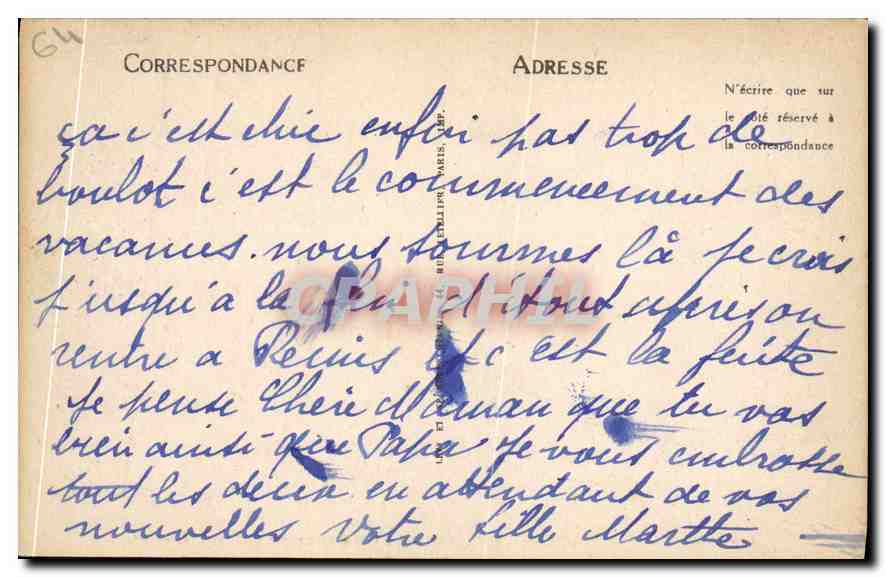 64
CORRESPONDANCE
ADRESSE
N'écrire que sur
le côté réservé à
la correspondance
ça c'est chic enfin pas trop de
boulot c'est le commencement des
vacances. nous sommes là je crois
j'usqu'a la fin d'Aout après on
rentre a Reims et c'est la
je pense Chère Maman que tu vas
bien ainsi que Papa je vous embrasse
tout les deux en attendant de vos
nouvelles Votre fille Marthe
CPAPHIL
PARIS, IMP.